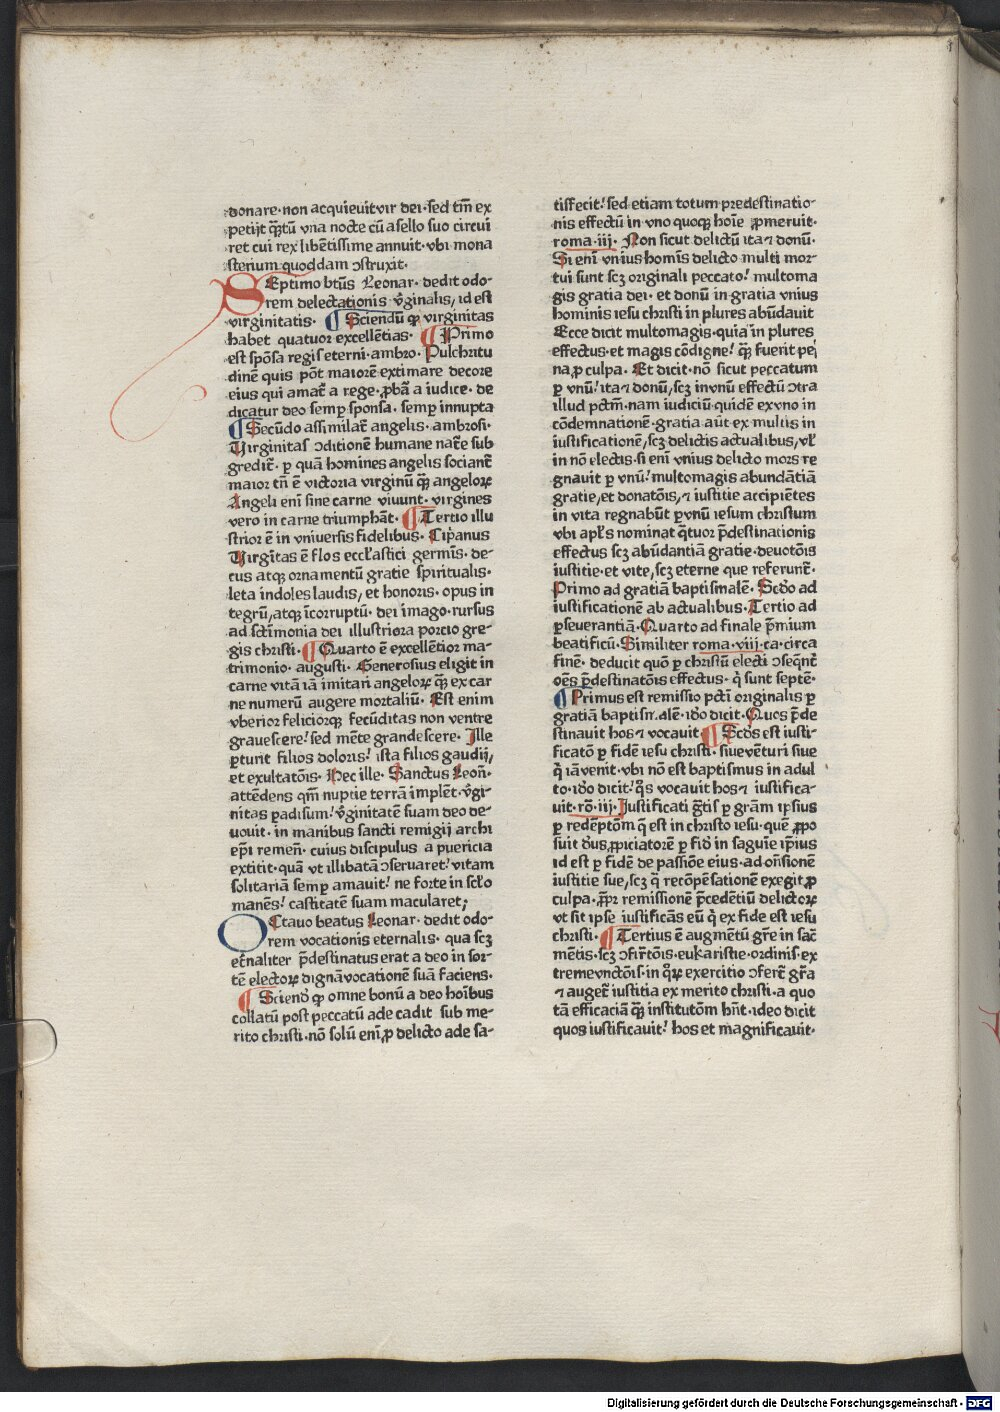 donare·non acquieuit vir dei·sed tm̄ ex
petijt q̄ꝫtū vna nocte cū asello suo circui
ret cui rex libētissime annuit·vbi mona
sterium quoddam ↄstruxit·
SEptimo btūs Leonar·dedit odo-
rem delectationis v̄ginalis, id est
virginitatis· ¶ Sciendū ꝙ virginitas
habet quatuor excellētias· ¶ Primo
est spōsa regis eterni·ambro· Pulchritu
dinē quis pōt maiorē extimare decore
eius qui amat̄ a rege·ꝓbā a iudice·de
dicatur deo semꝑ sponsa·semꝑ innupta
¶ Secūdo assimilat̄ angelis·ambrosi·
Virginitas ↄditionē humane nat̄e sub
gredit̄·ꝑ quā homines angelis sociant̄
maior tn̄ ē victoria virginū q̄ꝫ angeloꝝ
Angeli enī sine carne viuunt·virgines
vero in carne triumphāt· ¶ Tertio illu
strior ē in vniuersis fidelibus· Cip̄anus
Virgītas ē flos eccl̄astici germīs·de-
cus atqꝫ ornamentū gratie spiritualis·
leta indoles laudis, et honoris·opus in
tegrū, atqꝫ īcorruptū·dei imago·rursus
ad sctīmonia dei illustriora porcio gre-
gis christi· ¶ Quarto ē excellētior ma-
trimonio·augusti· Generosius eligit in
carne vitā iā imitari angeloꝝ q̄ꝫ ex car
ne numerū augere mortaliū· Est enim
vberior felicior⁊qꝫ fecūditas non ventre
grauescere! sed mēte grandescere· Ille
ꝑturit filios doloris! ista filios gaudij,
et exultatōis· Hec ille· Sanctus Leon̄·
attēdens qm̄ nuptie terrā implēt·v̄gi-
nitas ꝑadisum! v̄ginitatē suam deo de-
uouit·in manibus sancti remigij archi
ep̄i remen̄·cuius discipulus a puericia
extitit·quā vt illibatā ↄseruaret! vitam
solitariā semꝑ amauit! ne forte in scl̄o
manēs! castitatē suam macularet;
OCtauo beatus Leonar·dedit odo-
rem vocationis eternalis·qua scꝫ
et̄naliter p̄destinatus erat a deo in sor-
tē electoꝝ dignā vocationē suā faciens·
¶ Sciend̄ ꝙ omne bonū a deo hoībus
collatū post peccatū ade cadit sub me-
rito christi·nō solū enī, ꝓ delicto ade sa-
tisfecit! sed etiam totum predestinatio-
nis effectū in vno quoqꝫ hoīe ꝓmeruit·
roma·iij· Non sicut delictū ita⁊ donū·
Si enī vnius homīs delicto multi mor-
tui sunt scꝫ originali peccato! multoma
gis gratia dei·et donū in gratia vnius
hominis iesu christi in plures abūdauit
Ecce dicit multomagis·quia in plures
effectus·et magis cōdigne! q̄ꝫ fuerit pe
na, ꝓ culpa· Et dicit·nō sicut peccatum
ꝑ vnū! ita⁊ donū, scꝫ in vnū effectū ↄtra
illud pctm̄·nam iudiciū quidē ex vno in
cōdemnationē·gratia aūt ex multis in
iustificationē, scꝫ delictis actualibus, vl̓
in nō electis·si enī vnius delicto mors re
gnauit ꝑ vnū! multomagis abundātiā
gratie, et donatōis, ⁊ iustitie accipiētes
in vita regnabūt ꝑ vnū iesum christum
vbi apl̓s nominat q̄tuor p̄destinationis
effectus scꝫ abūdantiā gratie·deuotōis
iustitie·et vite, scꝫ eterne que referunt̄·
Primo ad gratiā baptismalē· Sc̄do ad
iustificationē ab actualibus· Tertio ad
ꝑseuerantiā· Quarto ad finale p̄mium
beatificū· Similiter roma·viij·ca·circa
finē·deducit quō ꝑ christū electi ↄseqn̄t̄
oēs p̄destinatōis effectus·q̄ sunt septē·
¶ Primus est remissio pctī originalis ꝑ
gratiā baptismalē·id̄o dicit· Quos p̄de
stinauit hos⁊ vocauit ¶ Sc̄ds est iusti-
ficatō ꝑ fidē iesu christi·siue vēturi siue
q̄ iā venit·vbi nō est baptismus in adul
to·id̄o dicit! q̄s vocauit hos⁊ iustifica-
uit·ro·iij· Iustificati gr̄tis ꝑ gr̄am ipsius
ꝑ redēptōm q̄ est in christo iesu·quē ꝓpo
suit d̄us, ꝓpiciatorē ꝑ fid̄ in saguīe ip̄ius
id est ꝑ fidē de passiōe eius·ad on̄sionē
iustitie sue, scꝫ q̄ recōpēsationē exegit ꝓ
culpa·ꝓpꝫ remissionē p̄cedētiū delictoꝝ
vt sit ip̄se iustificās eū q̄ ex fide est iesu
christi· ¶ Tertius ē augmētū gr̄e in sac̄
mētis·scꝫ ↄfir̄tōis·eukaristie·ordinis·ex
treme vnctōis·in qͥꝝ exercitio ↄfert̄ gr̄a
⁊ auget̄ iustitia ex merito christi·a quo
tā efficaciā q̄ꝫ institutōm hn̄t·ideo dicit
quos iustificauit! hos et magnificauit·
Digitalisierung gefördert durch die Deutsche Forschungsgemeinschaft - DFG